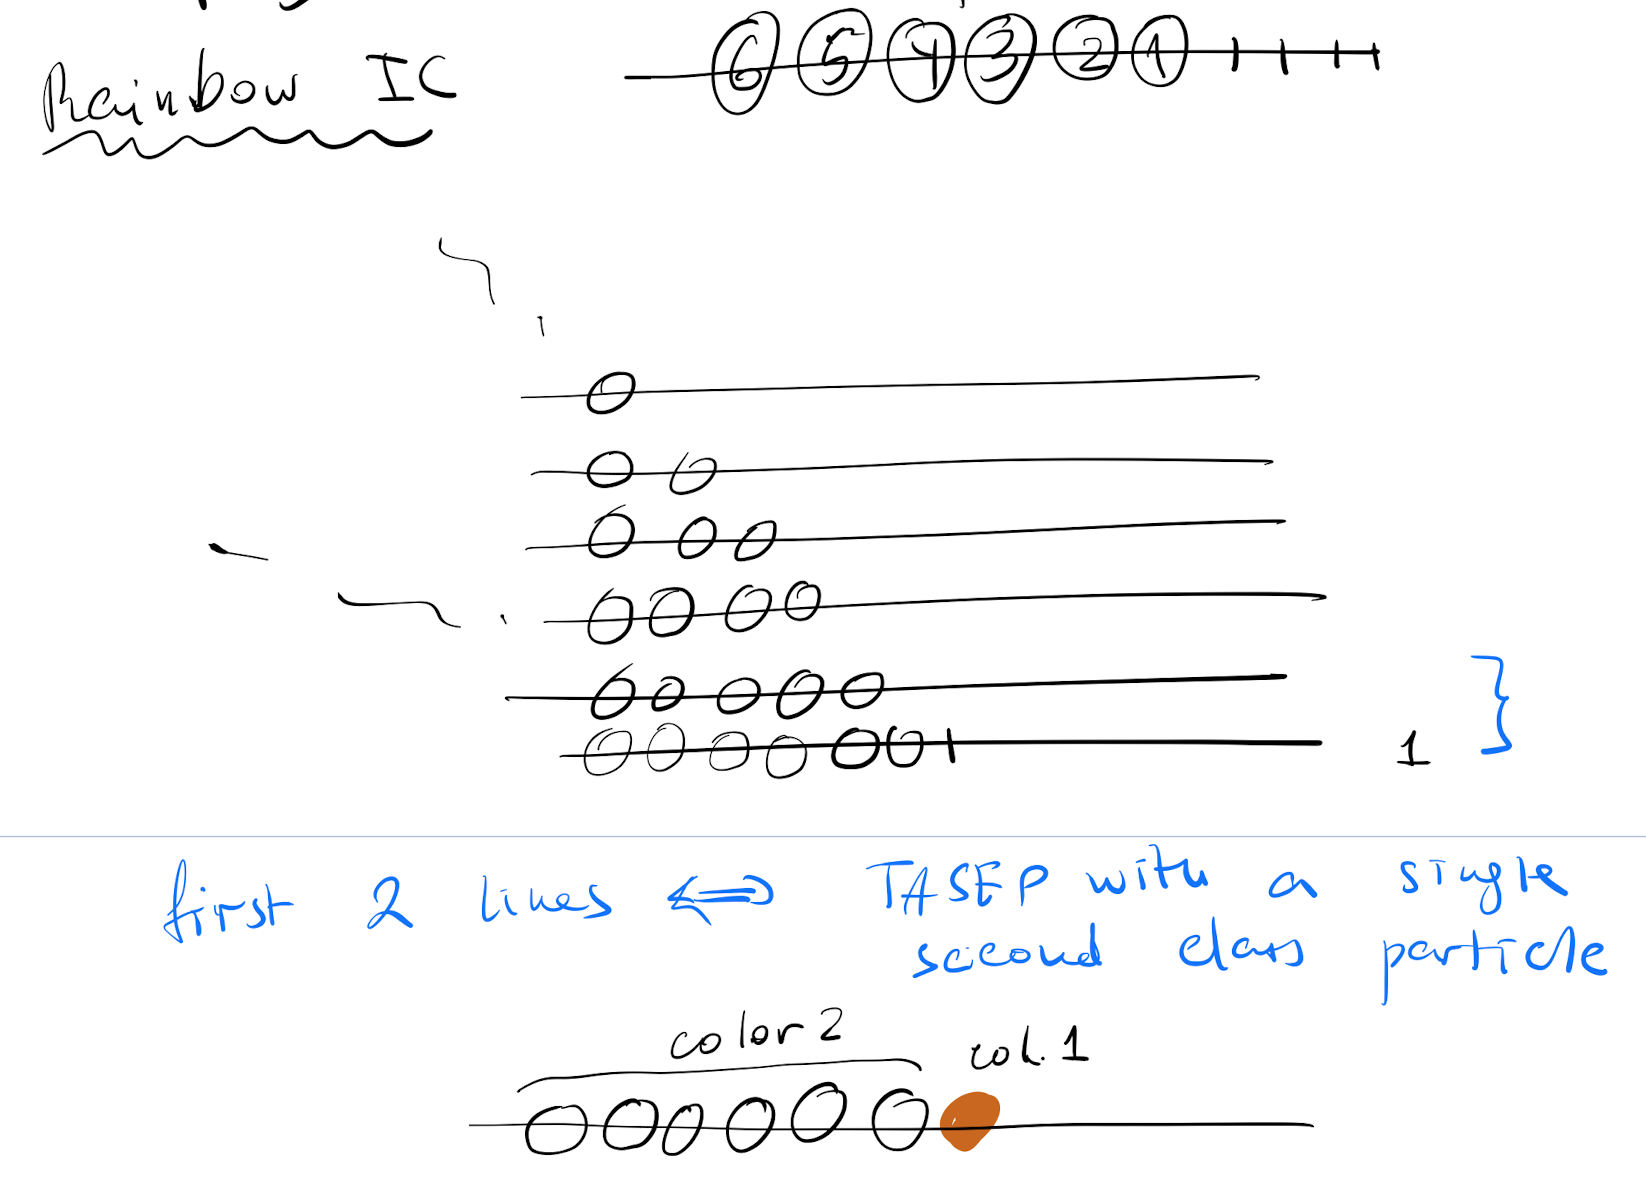 6 5 4 3 2 1
Rainbow IC
1
first 2 lines <=> TASEP with a single
second class particle
color 2
col. 1